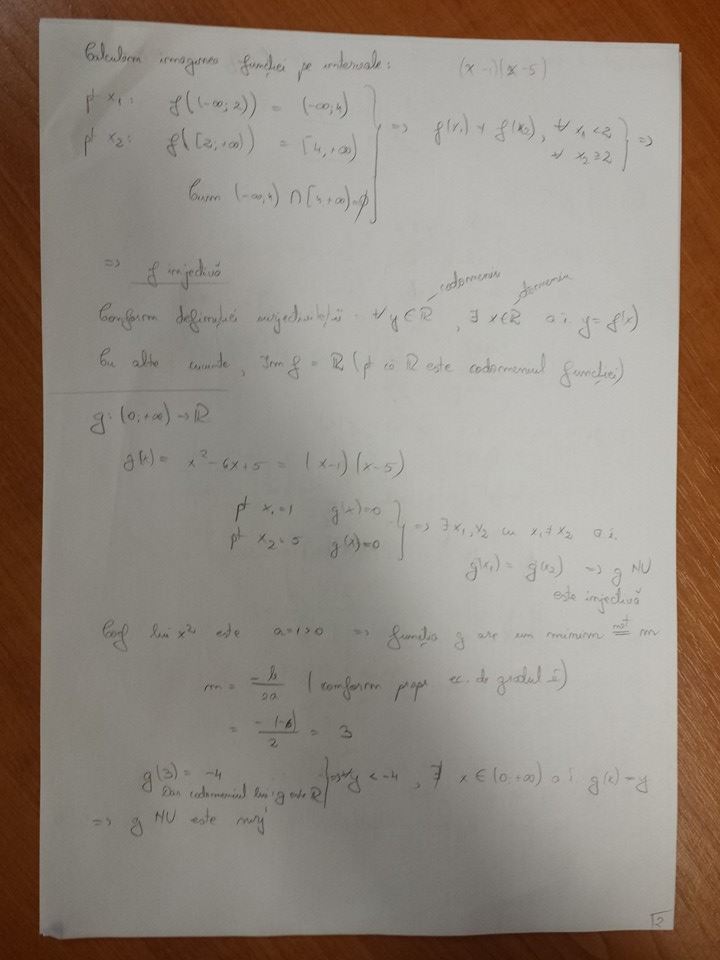 Calculăm imaginea funcției pe intervale: (x-1)(x-5)
pt x₁: f((-∞; 2)) = (-∞; 4)
pt x₂: f([2, +∞)) = [4, +∞)
Cum (-∞; 4) ∩ [4, +∞) = ∅
=> f(x₁) ≠ f(x₂), ∀ x₁ < 2
∀ x₂ ≥ 2 =>
=> f injectivă
codomeniu domeniu
Conform definiției surjectivității: ∀ y ∈ ℝ, ∃ x ∈ ℝ a.î. y = f(x)
Cu alte cuvinte, Im f = ℝ (pt că ℝ este codomeniul funcției)
g: (0, +∞) → ℝ
g(x) = x² - 6x + 5 = (x-1)(x-5)
pt x₁ = 1 g(x) = 0
pt x₂ = 5 g(x) = 0
=> ∃ x₁, x₂ cu x₁ ≠ x₂ a.î.
g(x₁) = g(x₂) => g NU
este injectivă
Coef lui x² este a = 1 > 0 => funcția g are un minim not= m
m = -b/2a (conform propr ec. de gradul
= -(-6)/2 = 3
g(3) = -4
Dar codomeniul lui g este ℝ
=> ∀ y < -4, ∄ x ∈ (0, +∞) a.î. g(x) = y
=> g NU este surj
2